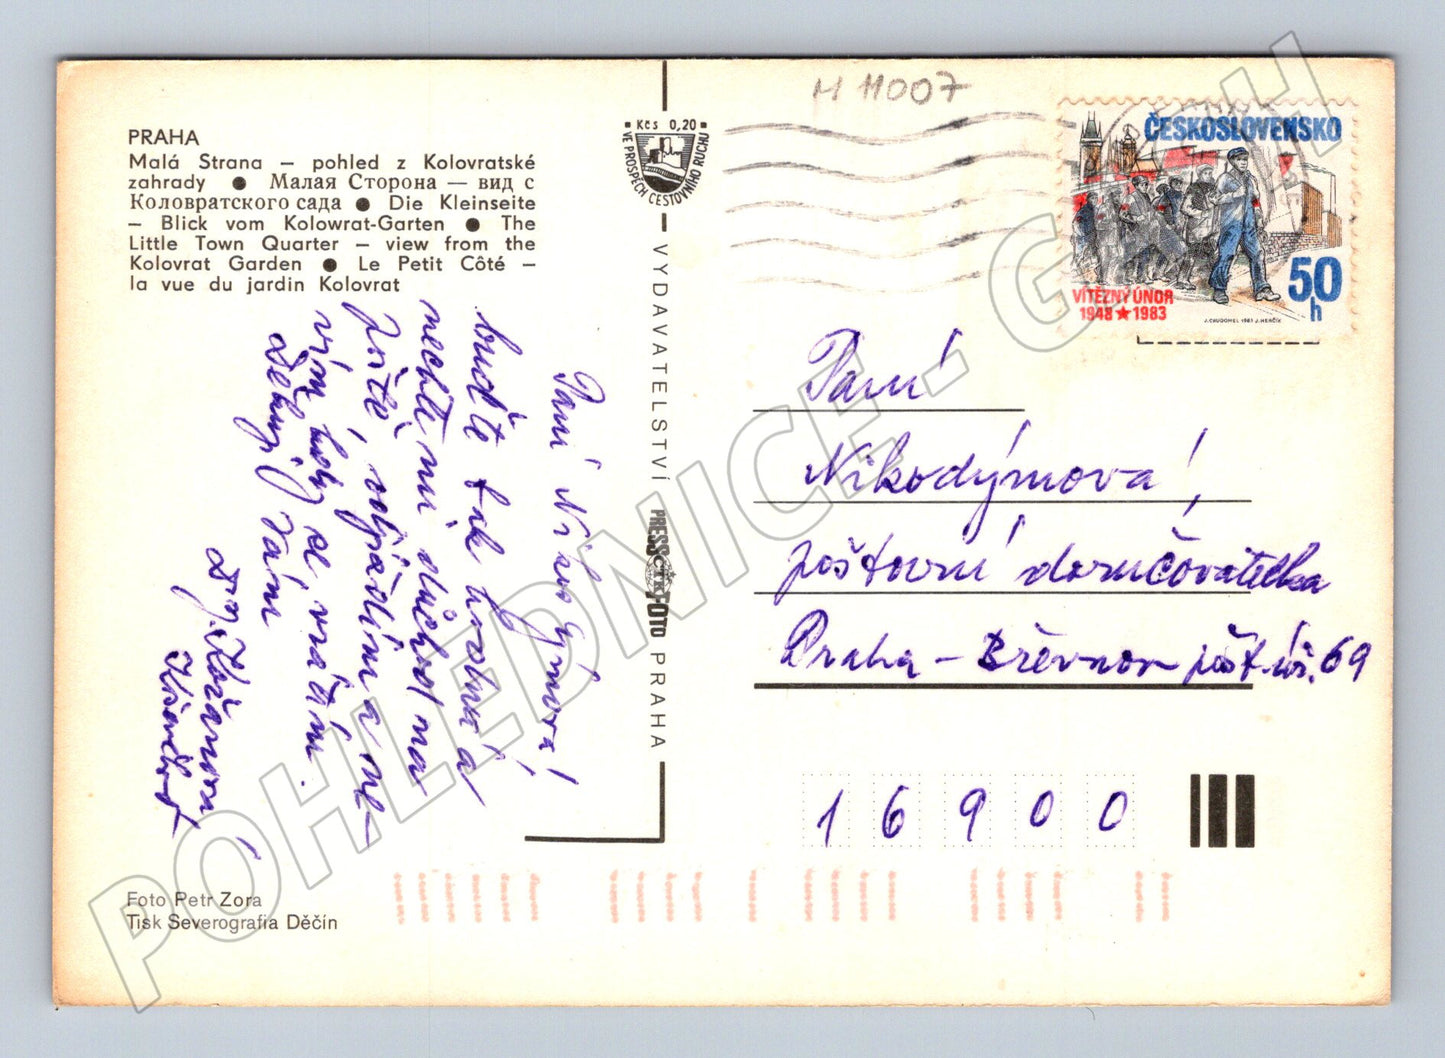 M 11007
PRAHA
Malá Strana – pohled z Kolovratské
zahrady ● Малая Сторона — вид с
Коловратского сада ● Die Kleinseite
– Blick vom Kolowrat-Garten ● The
Little Town Quarter – view from the
Kolovrat Garden ● Le Petit Côté –
la vue du jardin Kolovrat
Kčs 0,20
VE PROSPĚCH CESTOVNÍHO RUCHU
VYDAVATELSTVÍ PRESSFOTO PRAHA
ČTK
ČESKOSLOVENSKO
VÍTĚZNÝ ÚNOR
1948 ★ 1983
50
h
Paní Nikodýmová!
buďte tak hodná a
nechte mi důchod na
poště, odjíždím a ne-
vím kdy se vrátím.
Děkuji Vám
Paní
Nikodýmová,
poštovní doručovatelka
Praha – Břevnov pošt. úř. 69
16900
Foto Petr Zora
Tisk Severografia Děčín
POHLEDNICE - GASCH